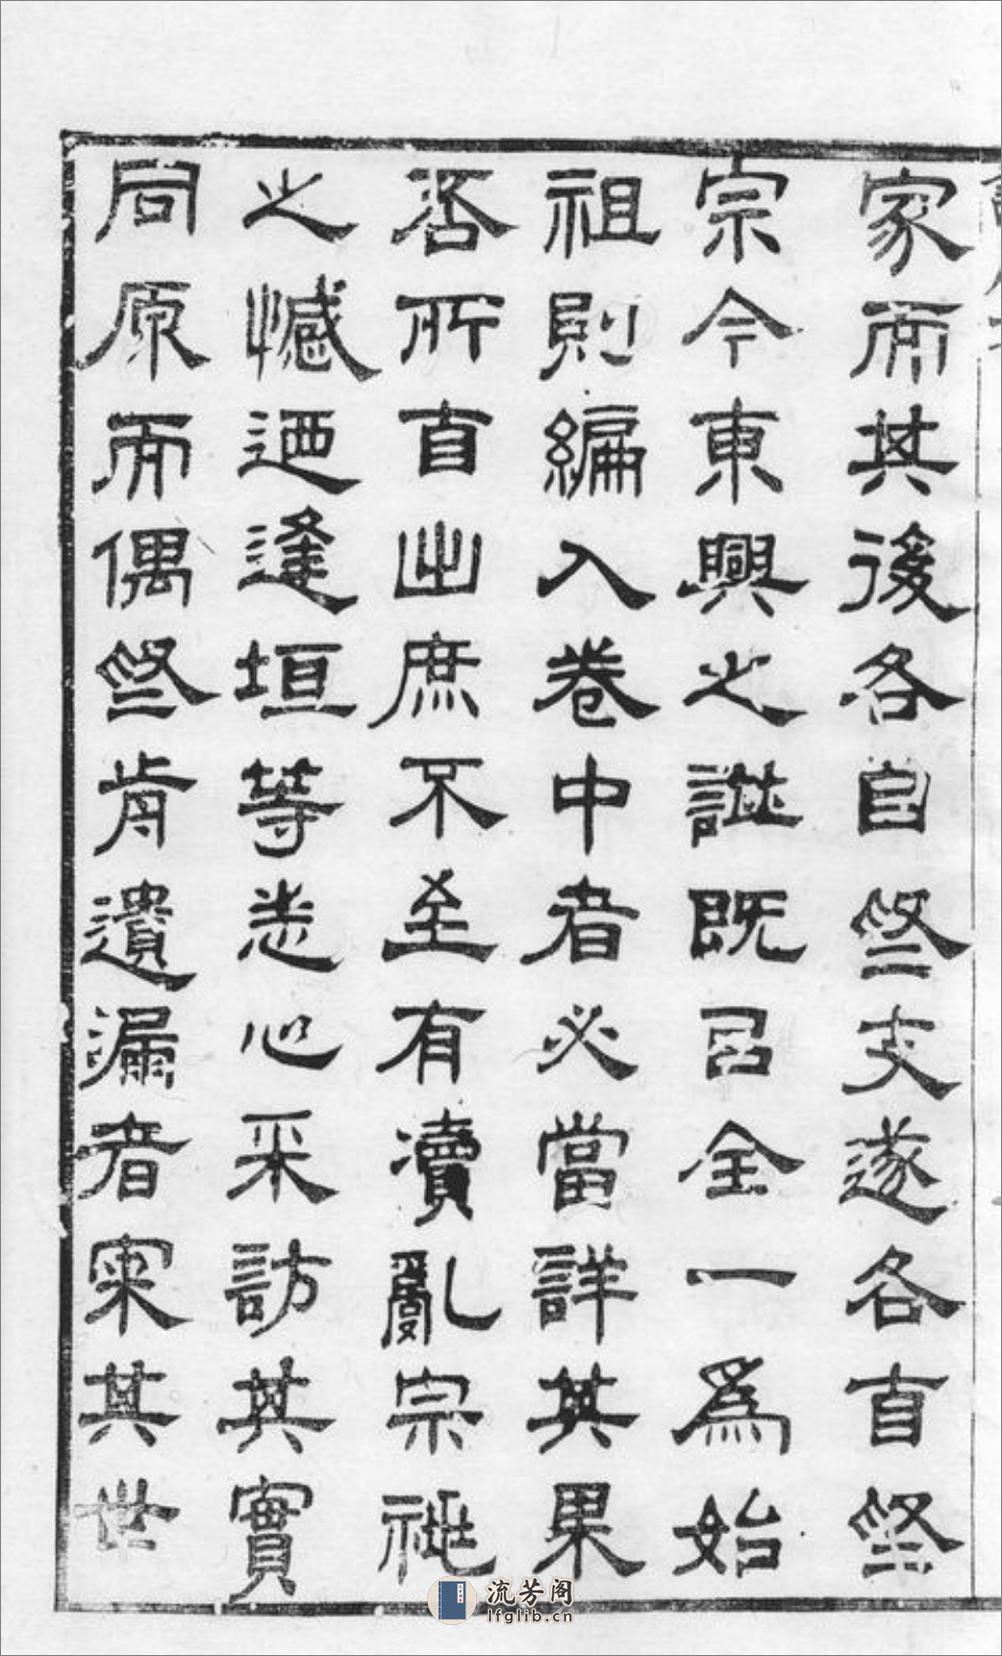 家而其後各自爲支遂各自爲
宗今東興之譜既㠯全一爲始
祖則編入卷中者必當詳其果
否所自出庶不至有瀆亂宗祧
之憾迺逢垣等悉心采訪其實
同原而偶爲歬遺漏者案其世
流芳阁
lfglib.cn